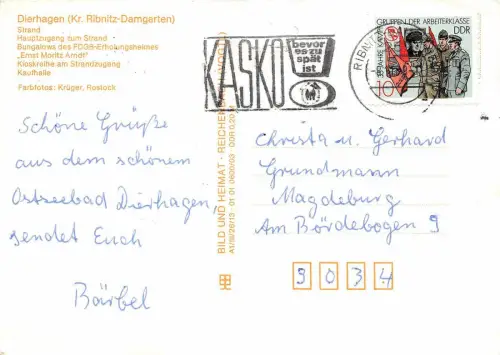 Dierhagen (Kr. Ribnitz-Damgarten)
Strand
Hauptzugang zum Strand
Bungalows des FDGB-Erholungsheimes
„Ernst Moritz Arndt"
Kioskreihe am Strandzugang
Kaufhalle
Farbfotos: Krüger, Rostock
Schöne Grüße
aus dem schönem
Ostseebad Dierhagen,
sendet Euch
Bärbel
BILD UND HEIMAT · REICHENBACH
A1/B/26/13 01 01 0600/03 DDR 0,20
KASKO
bevor
es zu
spät
ist
RIBN
KAMPFGRUPPEN DER ARBEITERKLASSE
DDR
10
Christa u. Gerhard
Grundmann
Magdeburg
Am Bördebogen 9
9034